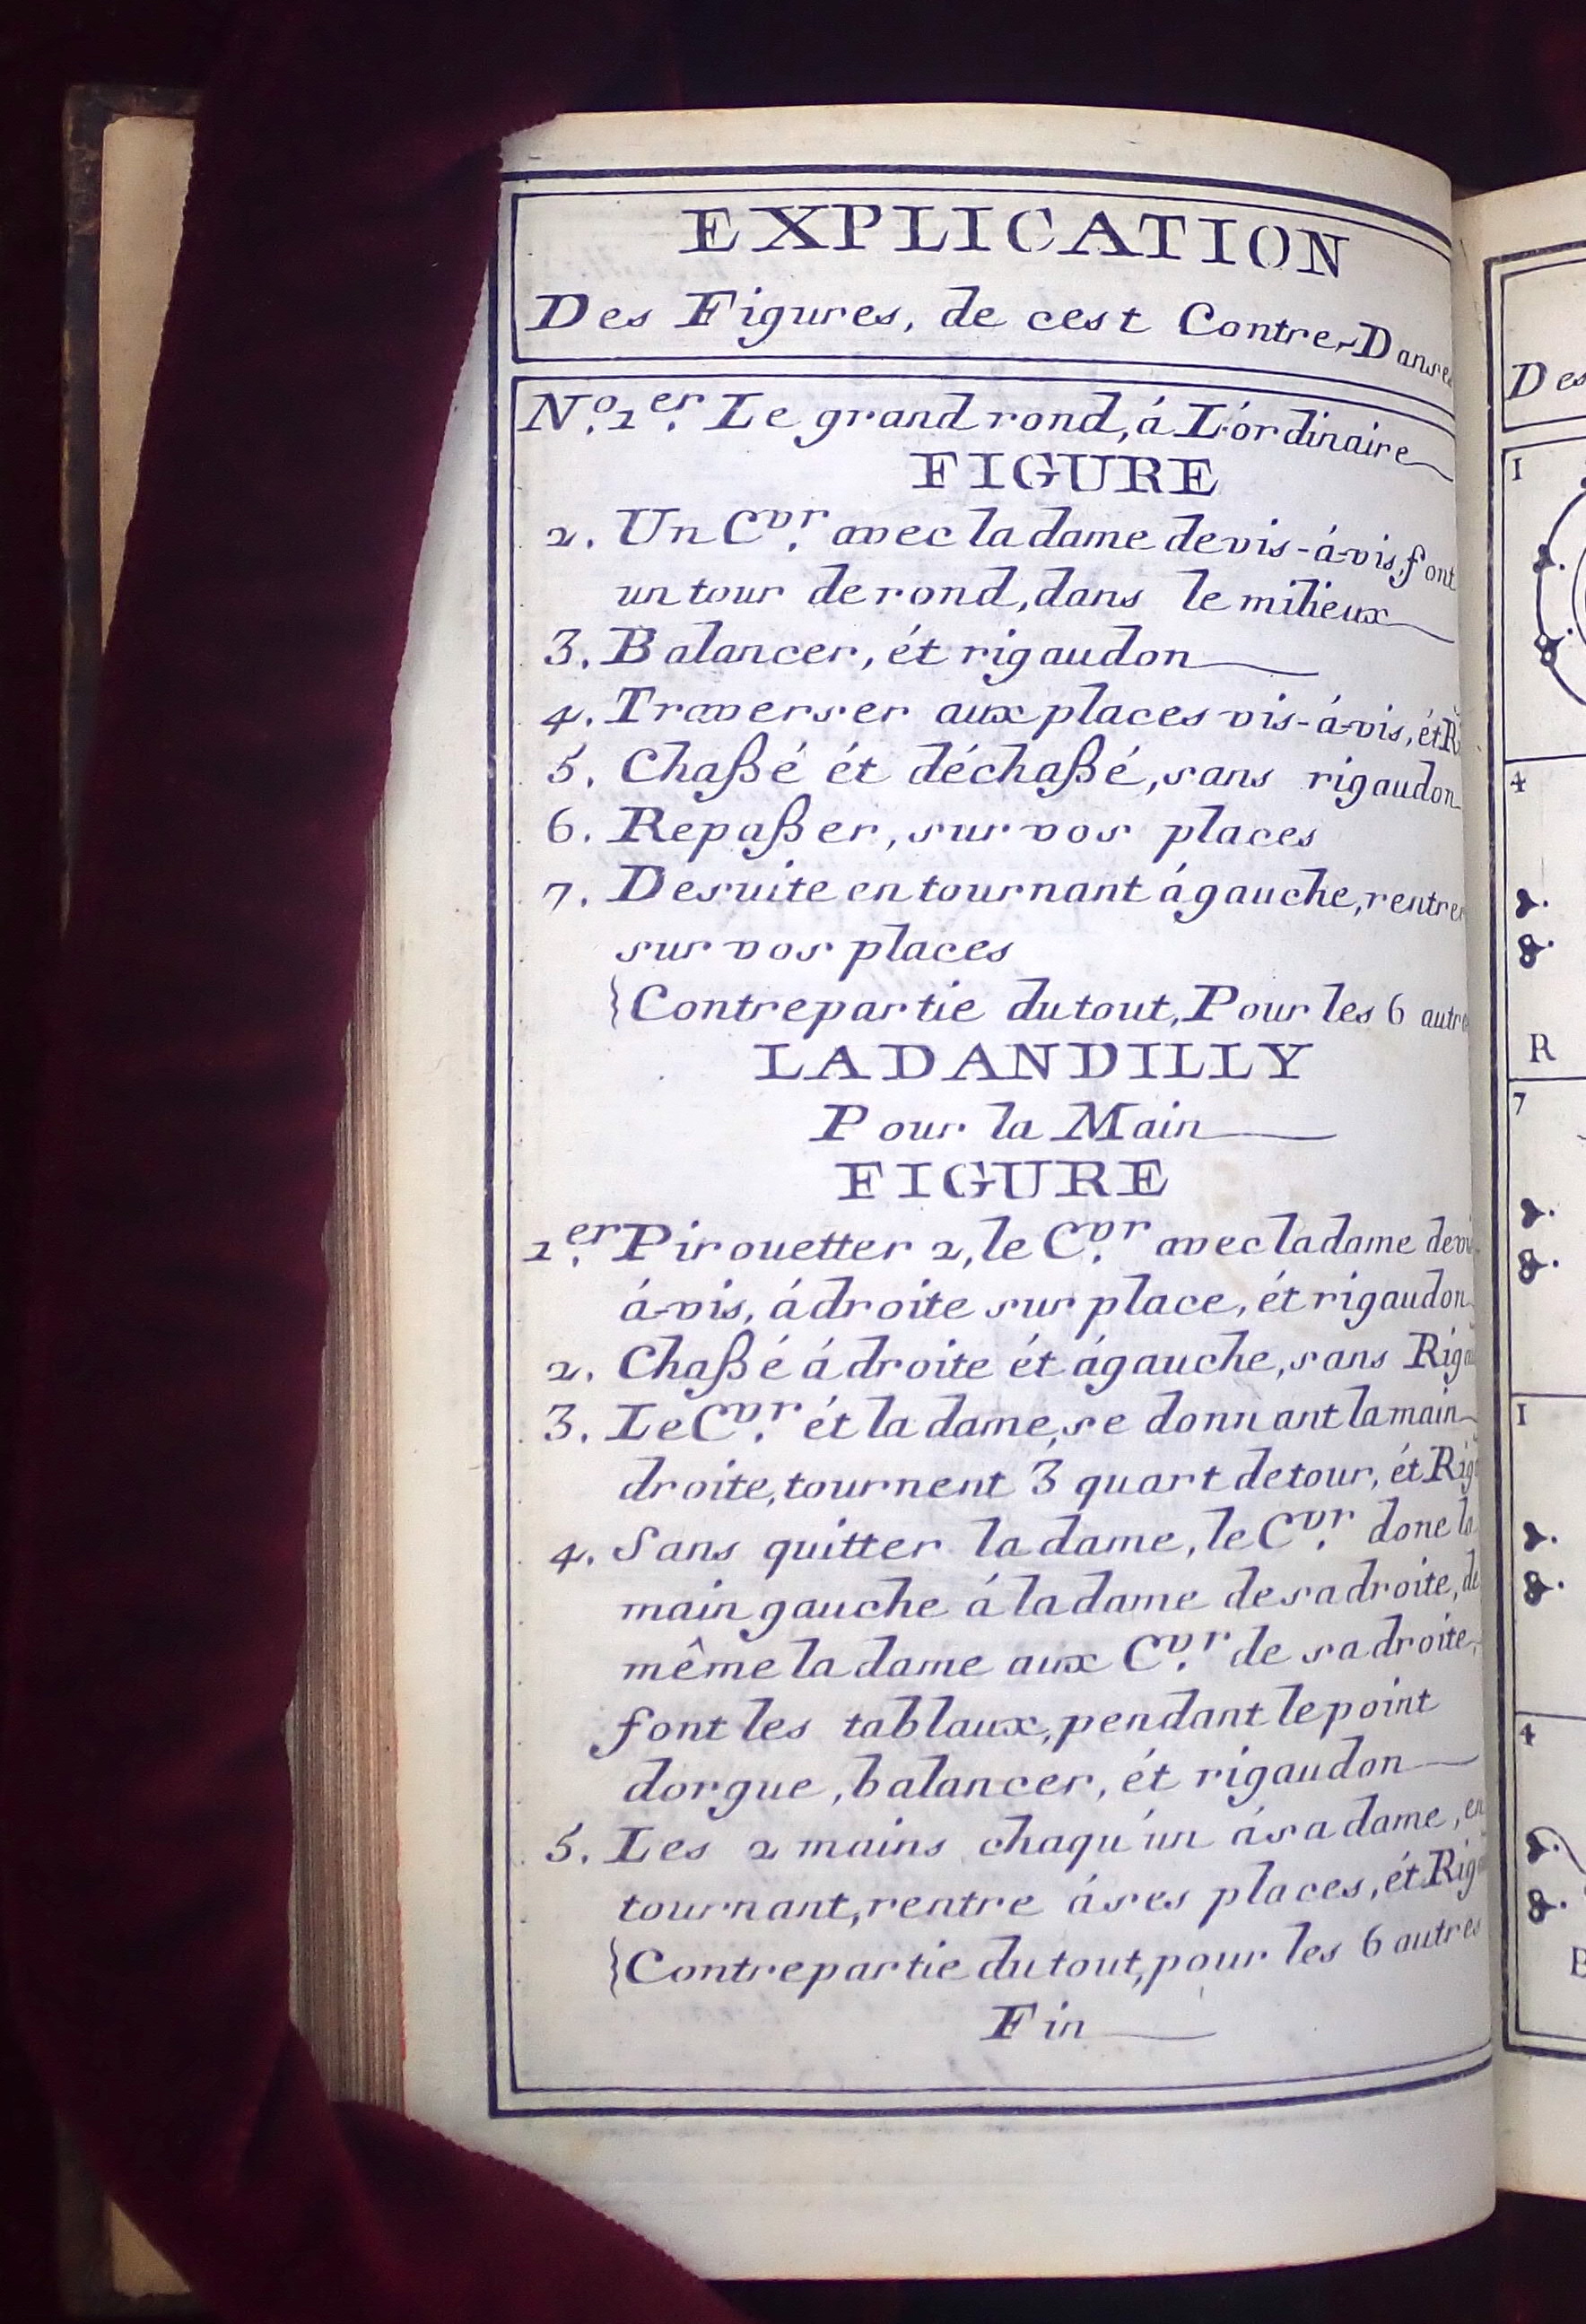 EXPLICATION
Des Figures, de cest Contre-Danses
N.º 1.er Le grand rond, á L'órdinaire
FIGURE
2. Un C.vr avec la dame devis-á-vis, font
un tour de rond, dans le milieux
3. Balancer, ét rigaudon
4. Traverser aux places vis-á-vis, ét R
5. Chaßé ét déchaßé, sans rigaudon
6. Repaßer, sur vos places
7. Desuite en tournant á gauche, rentrer
sur vos places
{Contrepartie du tout, Pour les 6 autre
LA DANDILLY
Pour la Main
FIGURE
1.er Pirouetter 2, le C.vr avec la dame devi
á-vis, á droite sur place, ét rigaudon
2. Chaßé á droite ét á gauche, sans Riga
3. Le C.vr ét la dame, se donnant la main
droite, tournent 3 quart de tour, ét Rig
4. Sans quitter la dame, le C.vr done la
main gauche á la dame de sa droite, de
même la dame aux C.vr de sa droite,
font les tablaux, pendant le point
dorgue, balancer, ét rigaudon
5. Les 2 mains chaqu'un á sa dame, en
tournant, rentre á ses places, ét Rig
{Contrepartie du tout, pour les 6 autres
Fin
Des
1
4
R
7
1
4